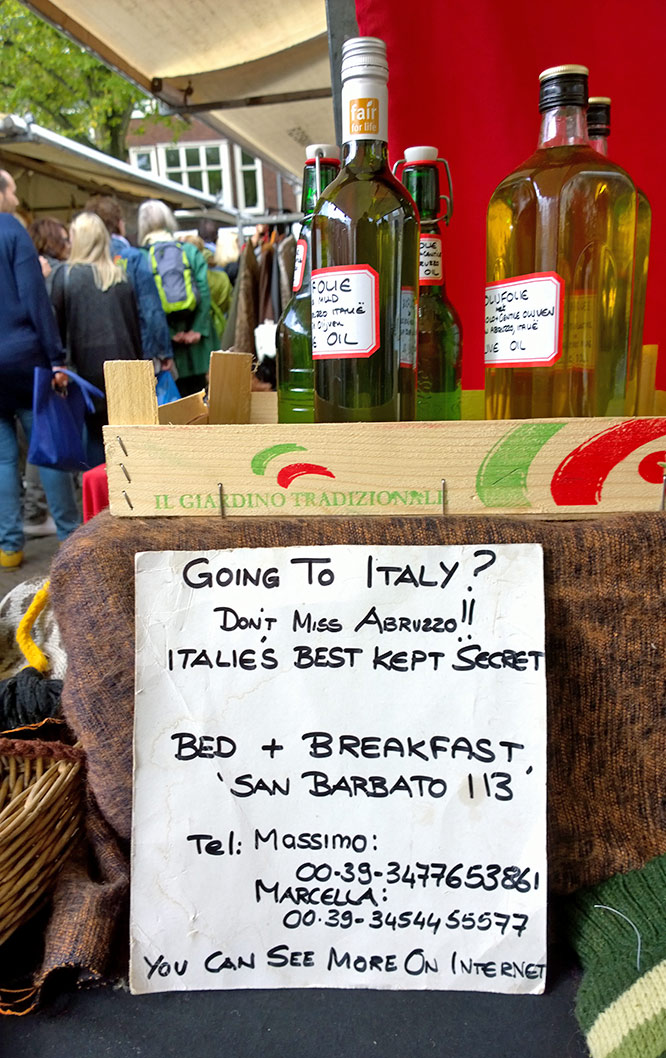 fair
for life
OLIJFOLIE
OLIVE OIL
IL GIARDINO TRADIZIONALE
GOING TO ITALY?
DON'T MISS ABRUZZO!!
ITALIE'S BEST KEPT SECRET
BED + BREAKFAST
'SAN BARBATO 113'
Tel: Massimo:
00-39-3477653861
MARCELLA:
00-39-3454455577
YOU CAN SEE MORE ON INTERNET